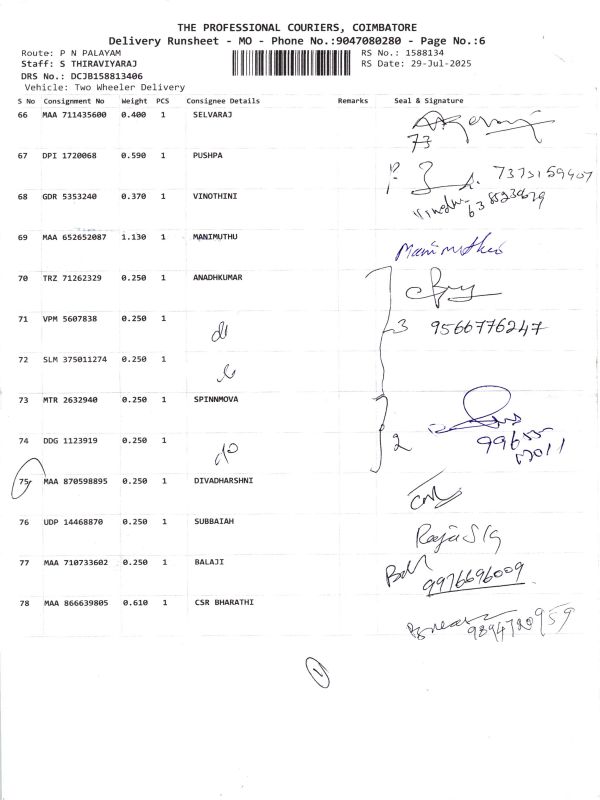 THE PROFESSIONAL COURIERS, COIMBATORE
Delivery Runsheet - MO - Phone No.:9047080280 - Page No.:6
Route: P N PALAYAM
RS No.: 1588134
Staff: S THIRAVIYARAJ
RS Date: 29-Jul-2025
DRS No.: DCJB158813406
Vehicle: Two Wheeler Delivery
S No Consignment No Weight PCS Consignee Details Remarks Seal & Signature
66 MAA 711435600 0.400 1 SELVARAJ
73
67 DPI 1720068 0.590 1 PUSHPA
68 GDR 5353240 0.370 1 VINOTHINI
69 MAA 652652087 1.130 1 MANIMUTHU
Manimuthu
70 TRZ 71262329 0.250 1 ANADHKUMAR
71 VPM 5607838 0.250 1
do
3 9566776247
72 SLM 375011274 0.250 1
73 MTR 2632940 0.250 1 SPINNMOVA
74 DDG 1123919 0.250 1
do
2
75 MAA 870598895 0.250 1 DIVADHARSHNI
76 UDP 14468870 0.250 1 SUBBAIAH
77 MAA 710733602 0.250 1 BALAJI
9976696009
78 CSR BHARATHI MAA 866639805 0.610 1
1